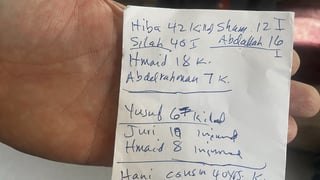 Hiba 42 Killed Sham 12 I
Silah 40 I Abdallah 16
I
Hmaid 18 K.
Abdelrahman 7 K.
Yusuf 6 killed
Juri injured
Hmaid 8 injured
Hani cousin 40 K.